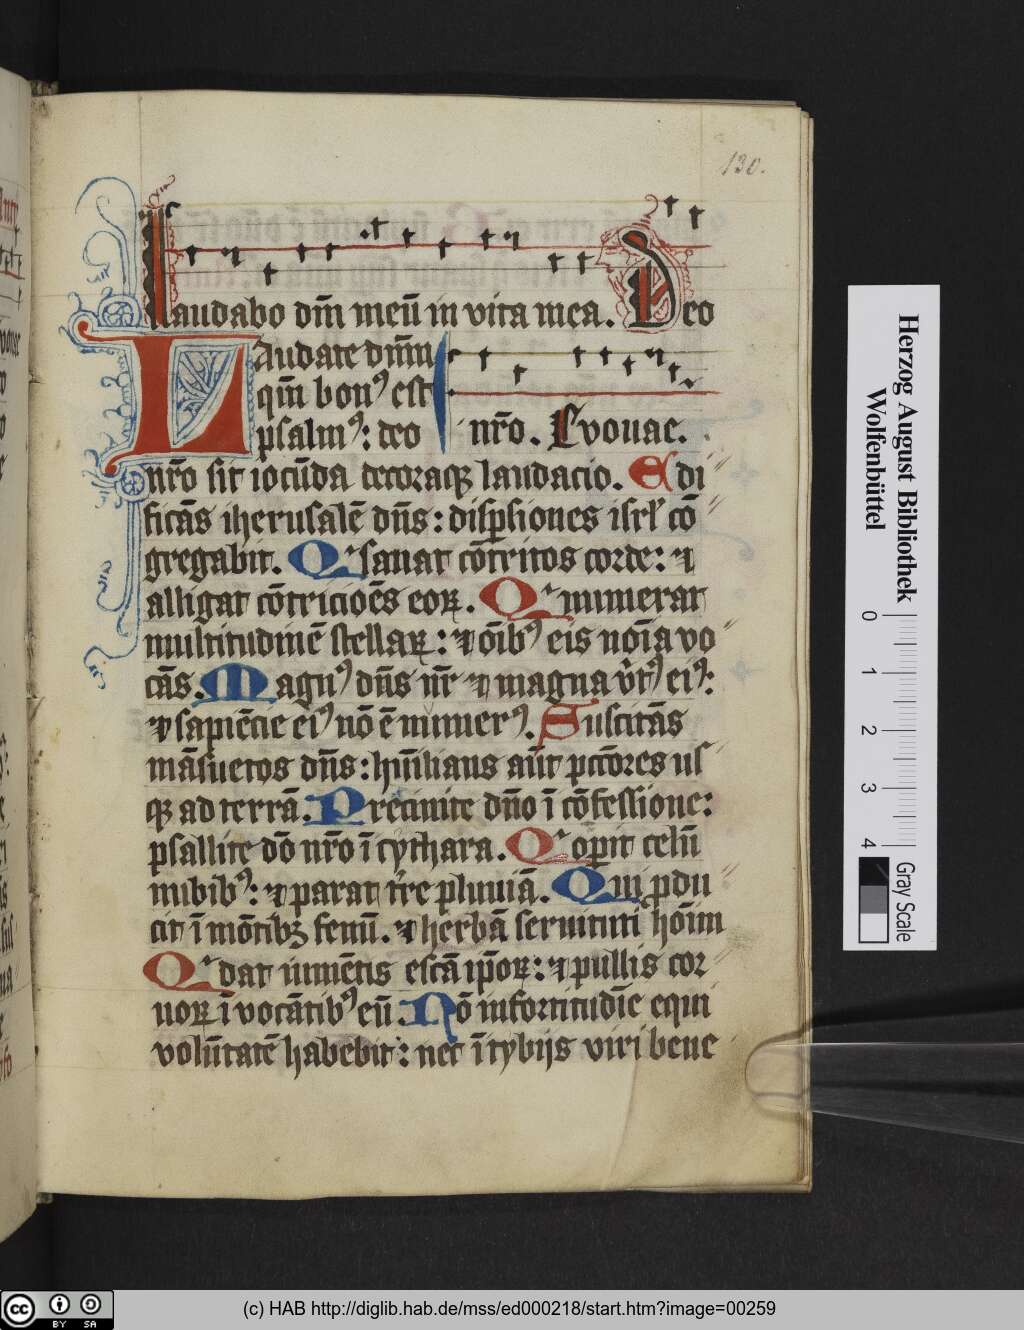 130.
Laudabo dm̄ meū in vita mea. Deo
Laudate dn̄m
qm̄ bonꝰ est
psalmꝰ: deo nr̄o. Euouae.
nr̄o sit iocūda decoraqꝫ laudacio. Edi
ficās iherusalē dn̄s: disꝑsiones isrl̓ cō
gregabit. Qͥ sanat cōtritos corde: ⁊
alligat cōtricioēs eoꝝ. Qͥ numerat
multitudinē stellaꝝ: ⁊ ōibꝰ eis noīa vo
cās. Magnꝰ dn̄s nr̄ ⁊ magna v̓tꝰ eiꝰ:
⁊ sapiēcie eiꝰ nō ē numerꝰ. Suscitās
māsuetos dn̄s: hūilians aūt pctōres us
qꝫ ad terrā. Precinite dn̄o ī cōfessione:
psallite dō nr̄o ī cythara. Qͥ oꝑit celū
nubibꝰ: ⁊ parat tr̄re pluuiā. Qui ꝓdu
cit ī mōtibꝫ fenū. ⁊ herbā seruituti hoīm
Qͥ dat iumētis escā ip̄oꝝ: ⁊ pullis cor
uoꝝ īvocātibꝰ eū. Nō in fortitudīe equi
volūtatē habebit: nec ī tybijs viri bene
Herzog August Bibliothek
Wolfenbüttel
0 1 2 3 4
Gray Scale
cc BY SA
(c) HAB http://diglib.hab.de/mss/ed000218/start.htm?image=00259